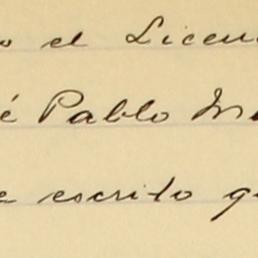 o el Licen
é Pablo M
e escrito q